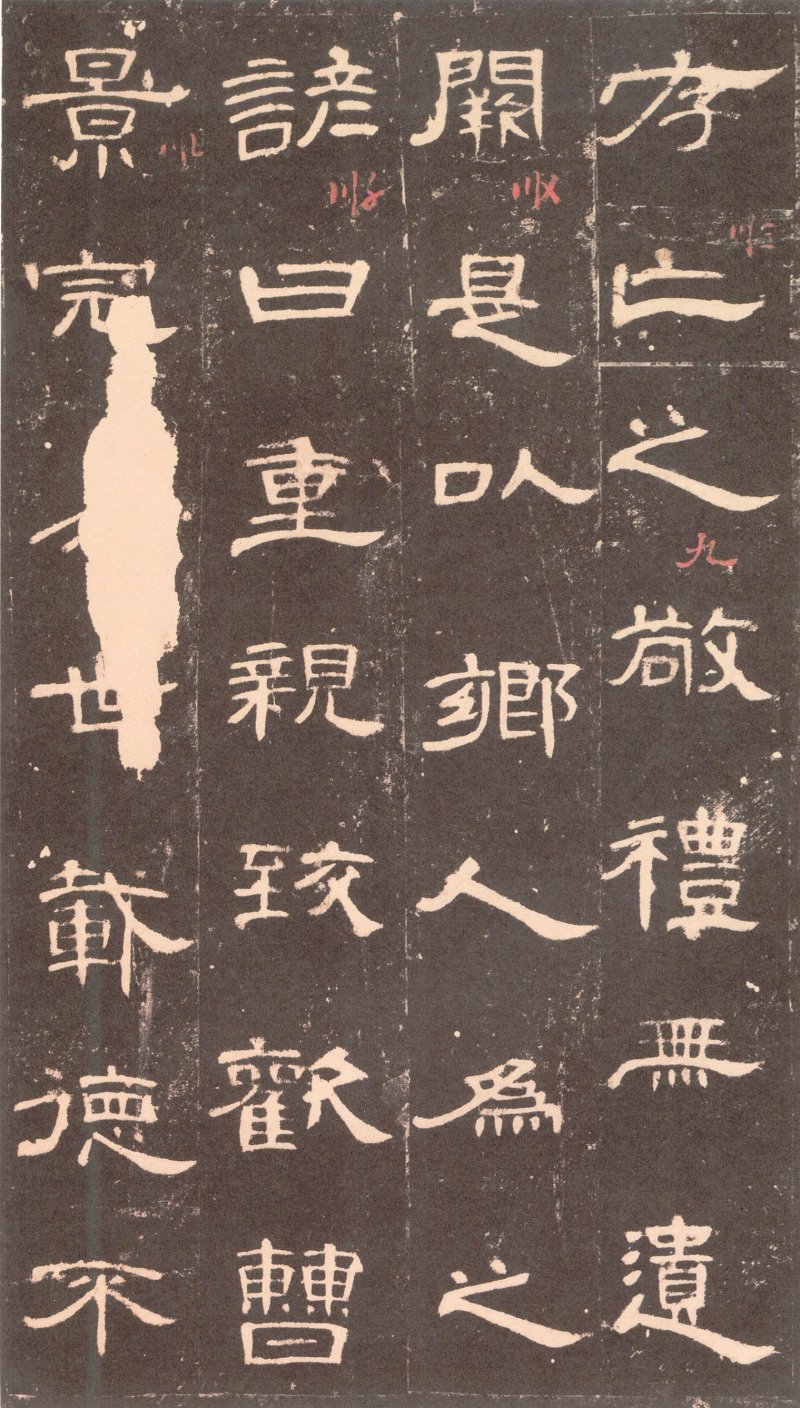 存亡之敬禮無遺
闕是以鄉人為之
諺曰重親致歡曹
景完世載德不
九